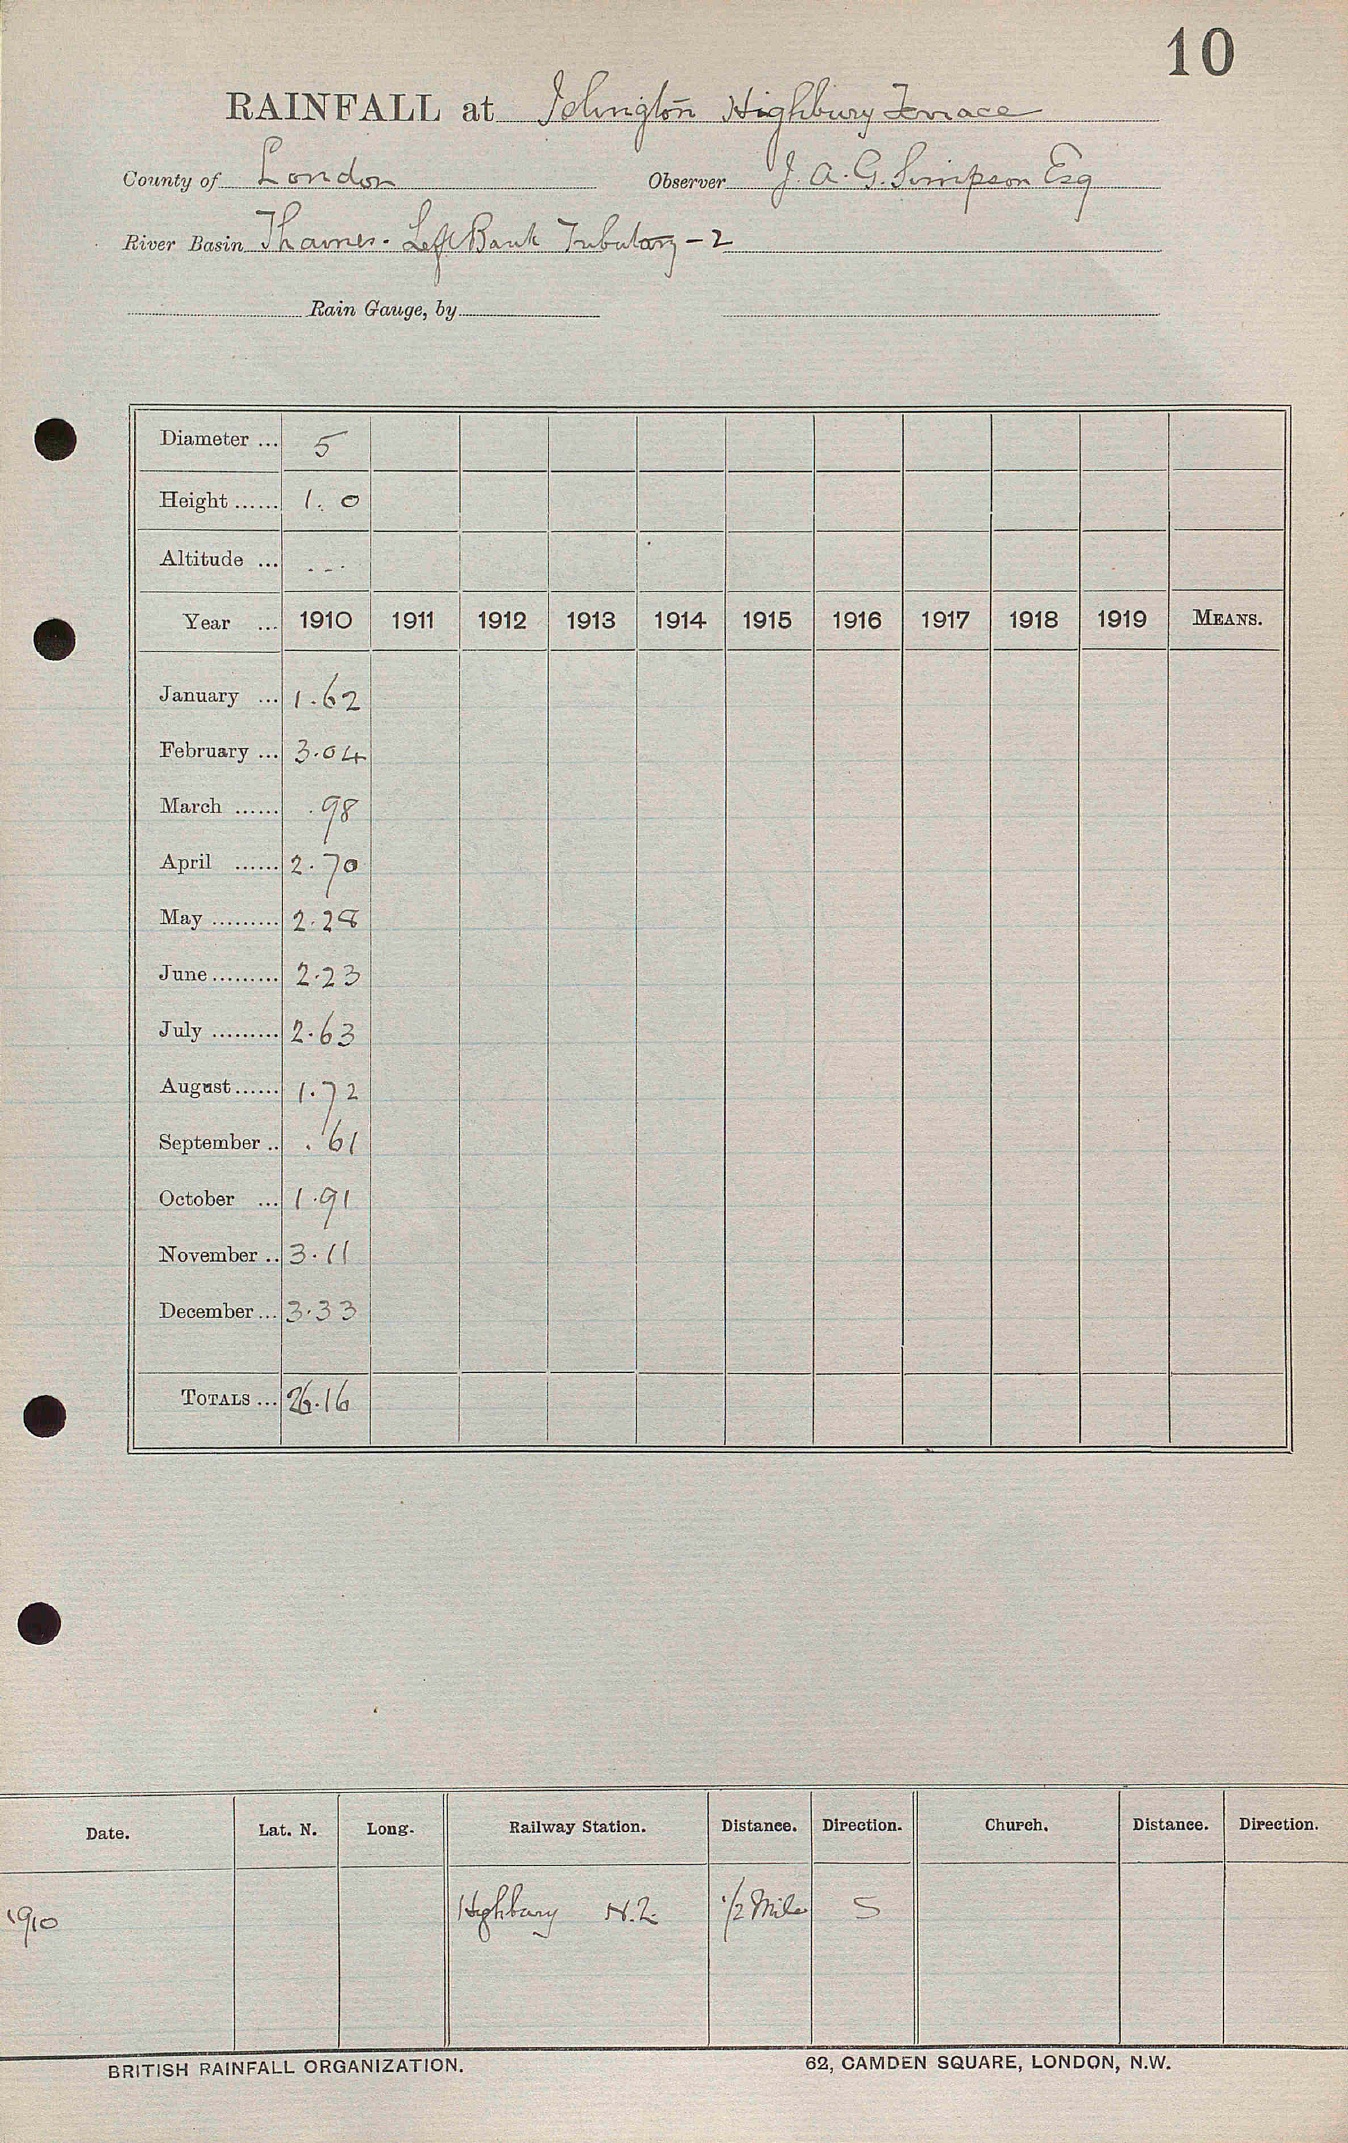 10
RAINFALL at Islington Highbury Terrace
County of London Observer J. A. G. Simpson Esq
River Basin Thames. Left Bank Tributary - 2
Rain Gauge, by
Diameter ... 5
Height ...... 1. 0
Altitude ... ---
Year ... 1910 1911 1912 1913 1914 1915 1916 1917 1918 1919 MEANS.
January ... 1.62
February ... 3.04
March ...... .98
April ...... 2.70
May ......... 2.28
June ......... 2.23
July ......... 2.63
August ...... 1.72
September .. .61
October ... 1.91
November .. 3.11
December ... 3.33
TOTALS ... 26.16
Date. Lat. N. Long. Railway Station. Distance. Direction. Church. Distance. Direction.
1910 Highbury N.L. 1/2 Mile S
BRITISH RAINFALL ORGANIZATION. 62, CAMDEN SQUARE, LONDON, N.W.